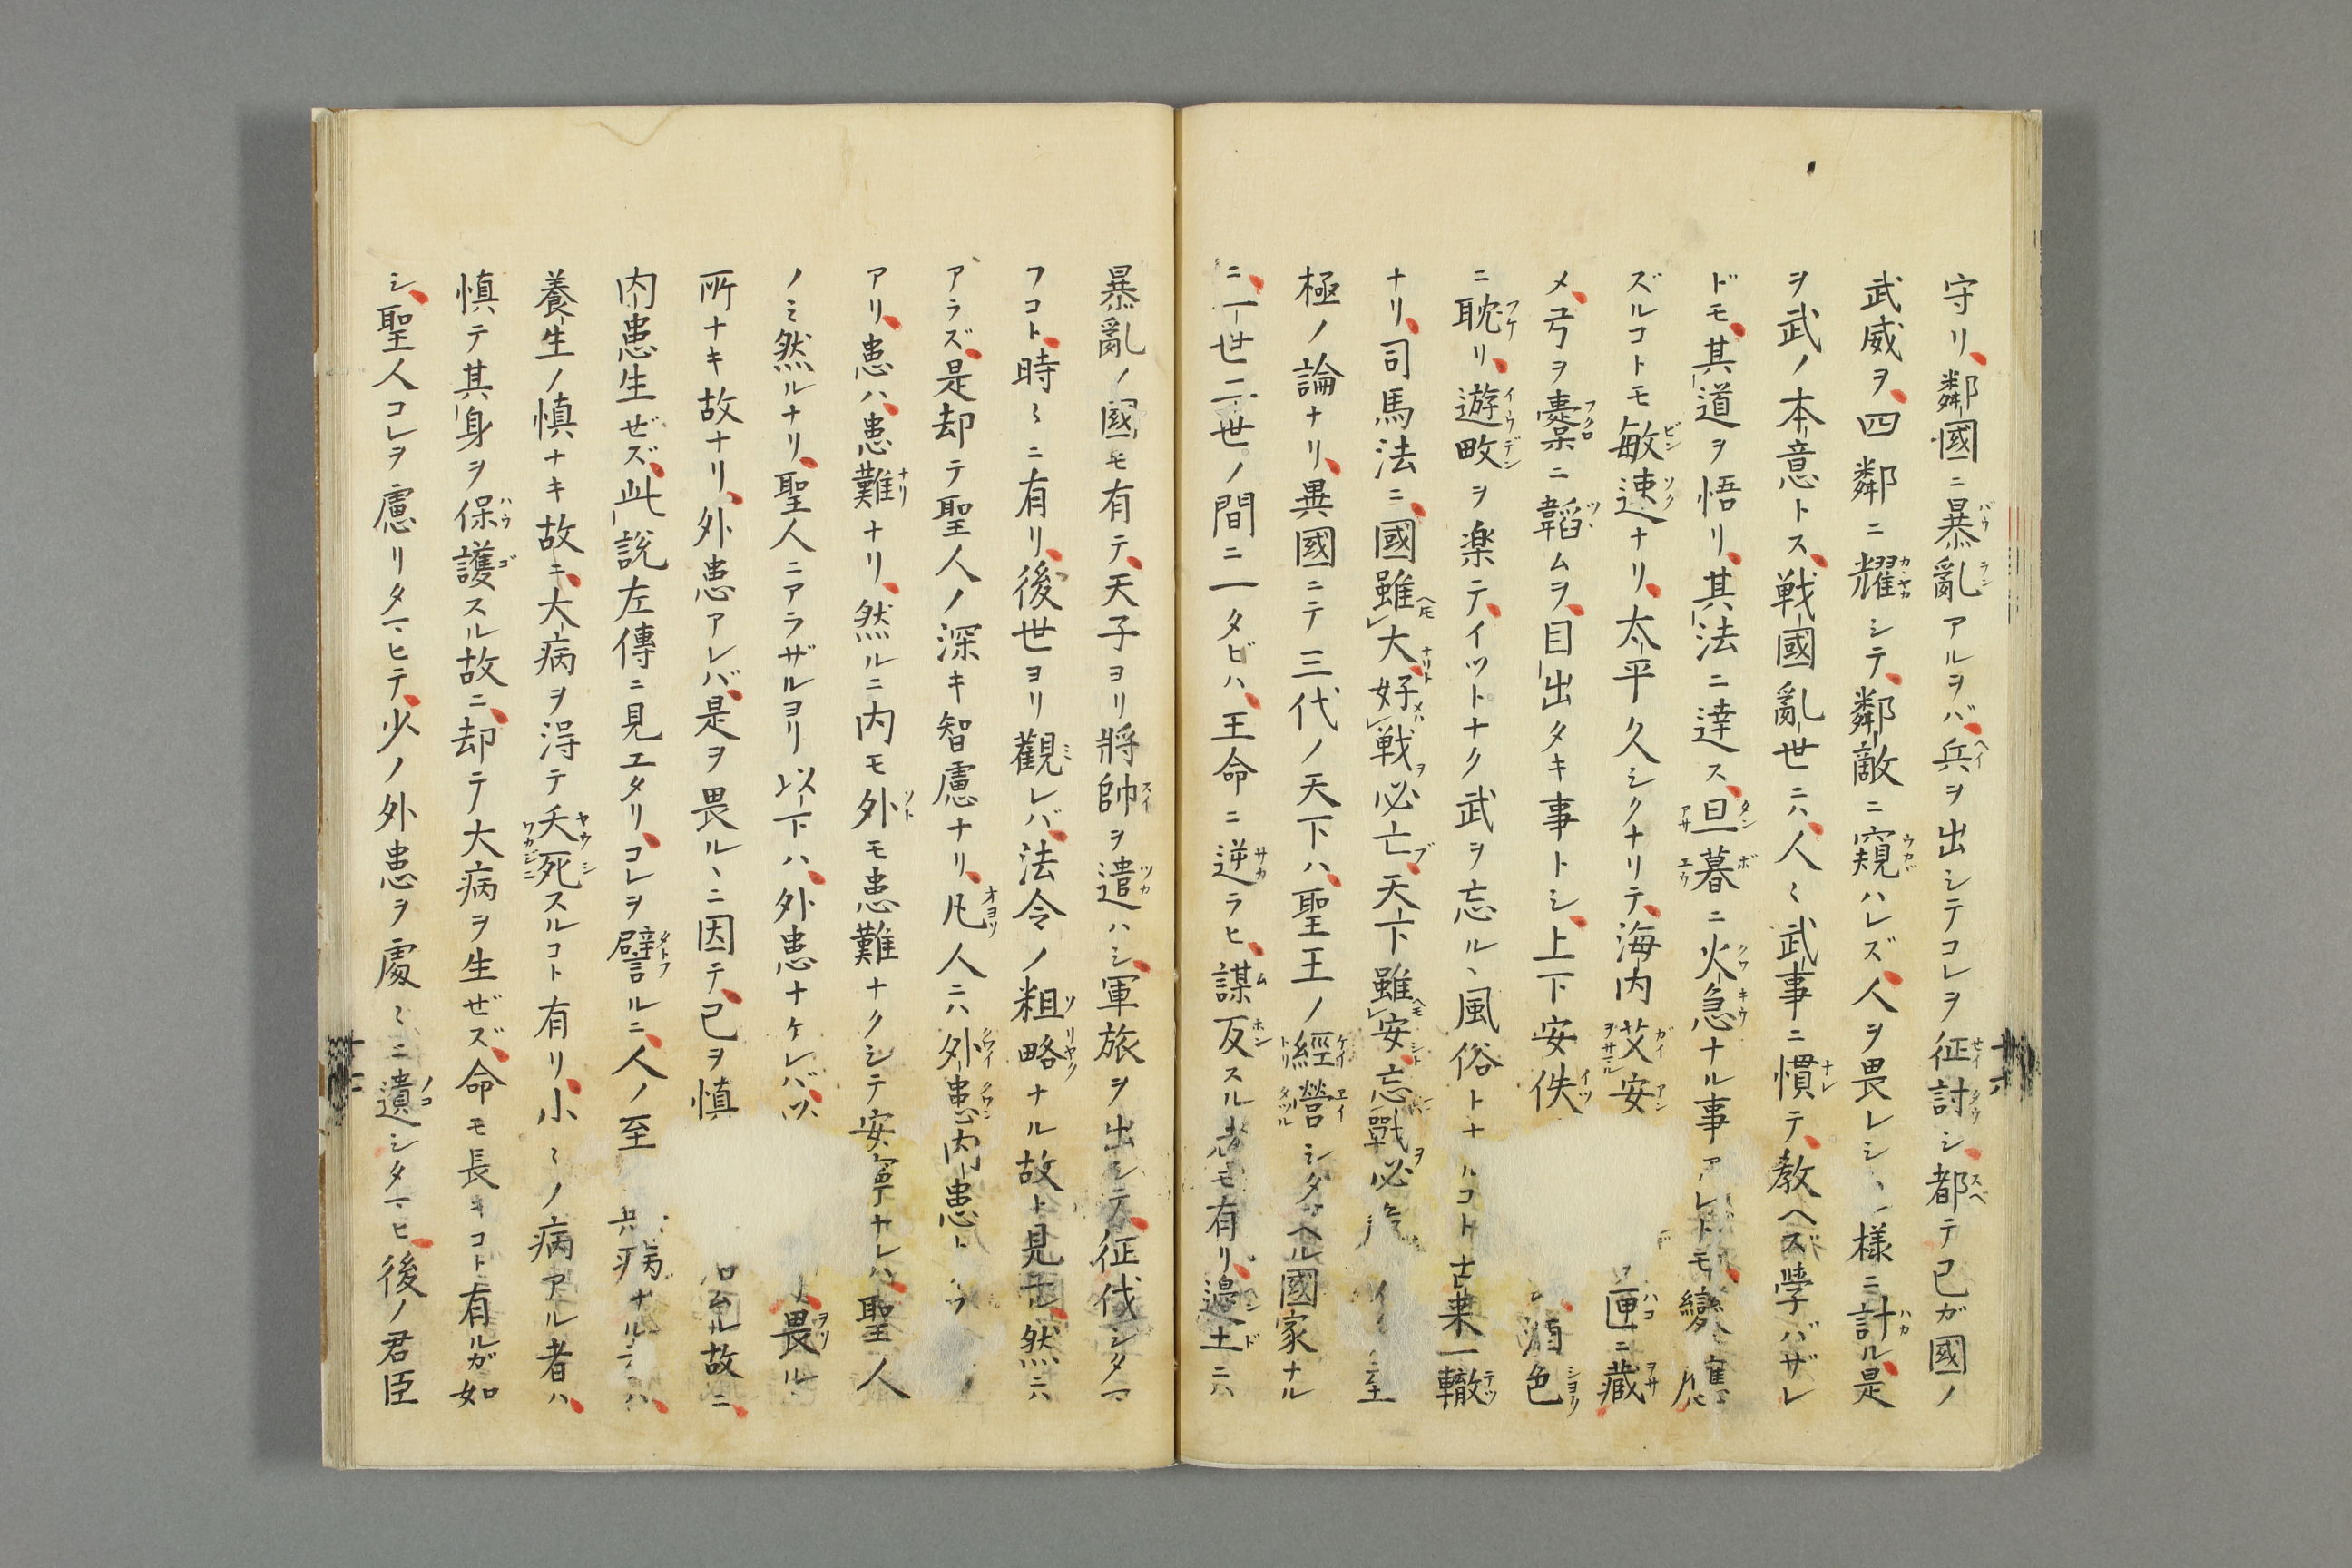 守リ、鄰國ニ暴亂アルヲバ、兵ヲ出シテコレヲ征討シ、都テ已ガ國ノ
武威ヲ、四鄰ニ耀シテ、鄰敵ニ窺ハレズ、人ヲ畏レシヽ様ニ計ル、是
ヲ武ノ本意トス、戦國亂世ニハ、人〻武事ニ慣テ、教ヘズ學バザレ
ドモ、其道ヲ悟リ、其法ニ達ス、旦暮ニ火急ナル事アレトモ、變ニ應
ズルコトモ敏速ナリ、太平久シクナリテ、海内艾安 匣ニ藏
メ、弓ヲ櫜ニ韜ムヲ、目出タキ事トシ、上下安佚 酒色
ニ耽リ、遊畋ヲ楽テ、イツトナク武ヲ忘ル、風俗トナルコト古来一轍
ナリ、司馬法ニ、國雖大、好戦必亡、天下雖安、忘戰必 至
極ノ論ナリ、異國ニテ三代ノ天下ハ、聖王ノ經營シタマヘル國家ナル
ニ、一世二世ノ間ニ一タビハ、王命ニ逆ラヒ、謀反スル者モ有リ、邉土ニハ
暴亂ノ國モ有テ、天子ヨリ將帥ヲ遣ハシ、軍旅ヲ出シテ、征伐シタマ
フコト、時〻ニ有リ、後世ヨリ觀レバ、法令ノ粗略ナル故ト見 然ニハ
アラズ、是却テ聖人ノ深キ智慮ナリ、凡人ニハ外患内患ト
アリ、患ハ、患難ナリ、然ルニ内モ外モ患難ナクシテ安寧ナレハ、聖人
ノミ然ルナリ、聖人ニアラザルヨリ以下ハ、外患ナケレバ、 畏ル
所ナキ故ナリ、外患アレバ、是ヲ畏ル、ニ因テ、己ヲ慎 ル故ニ、
内患生ゼズ、此説左傳ニ見エタリ、コレヲ譬ルニ、人ノ至 病ナル ハ、
養生ノ慎ナキ故ニ、大病ヲ淂テ夭死スルコト有リ、小〻ノ病アル者ハ、
慎テ其身ヲ保護スル故ニ、却テ大病ヲ生ゼズ、命モ長キコト有ルガ如
シ、聖人コレヲ慮リタマヒテ、少ノ外患ヲ處〻ニ遺シタマヒ、後ノ君臣